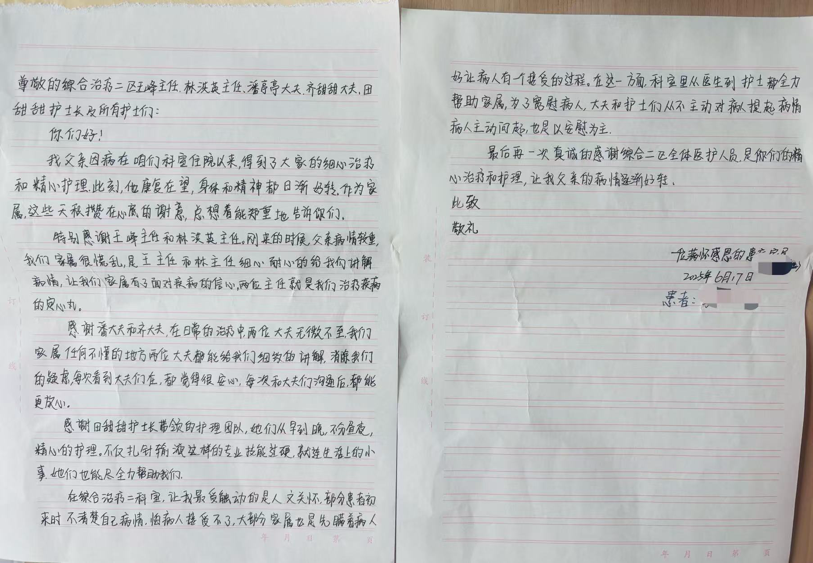 尊敬的综合治疗二区王峰主任、林洪英主任、潘亭大夫、齐甜甜大夫、田
甜甜护士长及所有护士们：
你们好！
我父亲因病在咱们科室住院以来，得到了大家的细心治疗
和精心护理。此刻，他康复在望，身体和精神都日渐好转。作为家
属，这些天积攒在心底的谢意，总想着能郑重地告诉你们。
特别感谢王峰主任和林洪英主任。刚来的时候，父亲病情较重，
我们家属很慌乱，是王主任和林主任细心耐心的给我们讲解
病情，让我们家属有了面对疾病的信心，两位主任就是我们治疗疾病
的定心丸。
感谢潘大夫和齐大夫，在日常的治疗中两位大夫无微不至，我们
家属任何不懂的地方两位大夫都能给我们细致的讲解，消除我们
的疑虑，每次看到大夫们在，都觉得很安心，每次和大夫们沟通后，都能
更放心。
感谢田甜甜护士长带领的护理团队，她们从早到晚，不分昼夜，
精心的护理。不仅扎针输液这样的专业技能过硬，就连生活上的小
事她们也能尽全力帮助我们。
在综合治疗二科室，让我最受触动的是人文关怀，部分患者初
来时不清楚自己病情，怕病人接受不了，大部分家属也是先瞒着病人
好让病人有一个接受的过程。在这一方面，科室里从医生到护士都全力
帮助家属，为了宽慰病人，大夫和护士们从不主动对病人提起病情
病人主动问起，也是以安慰为主。
最后再一次真诚的感谢综合二区全体医护人员，是你们的精
心治疗和护理，让我父亲的病情逐渐好转。
此致
敬礼
一位满怀感恩的患者家属
2025年6月17日
患者：
年 月 日 第 页
年 月 日 第 页